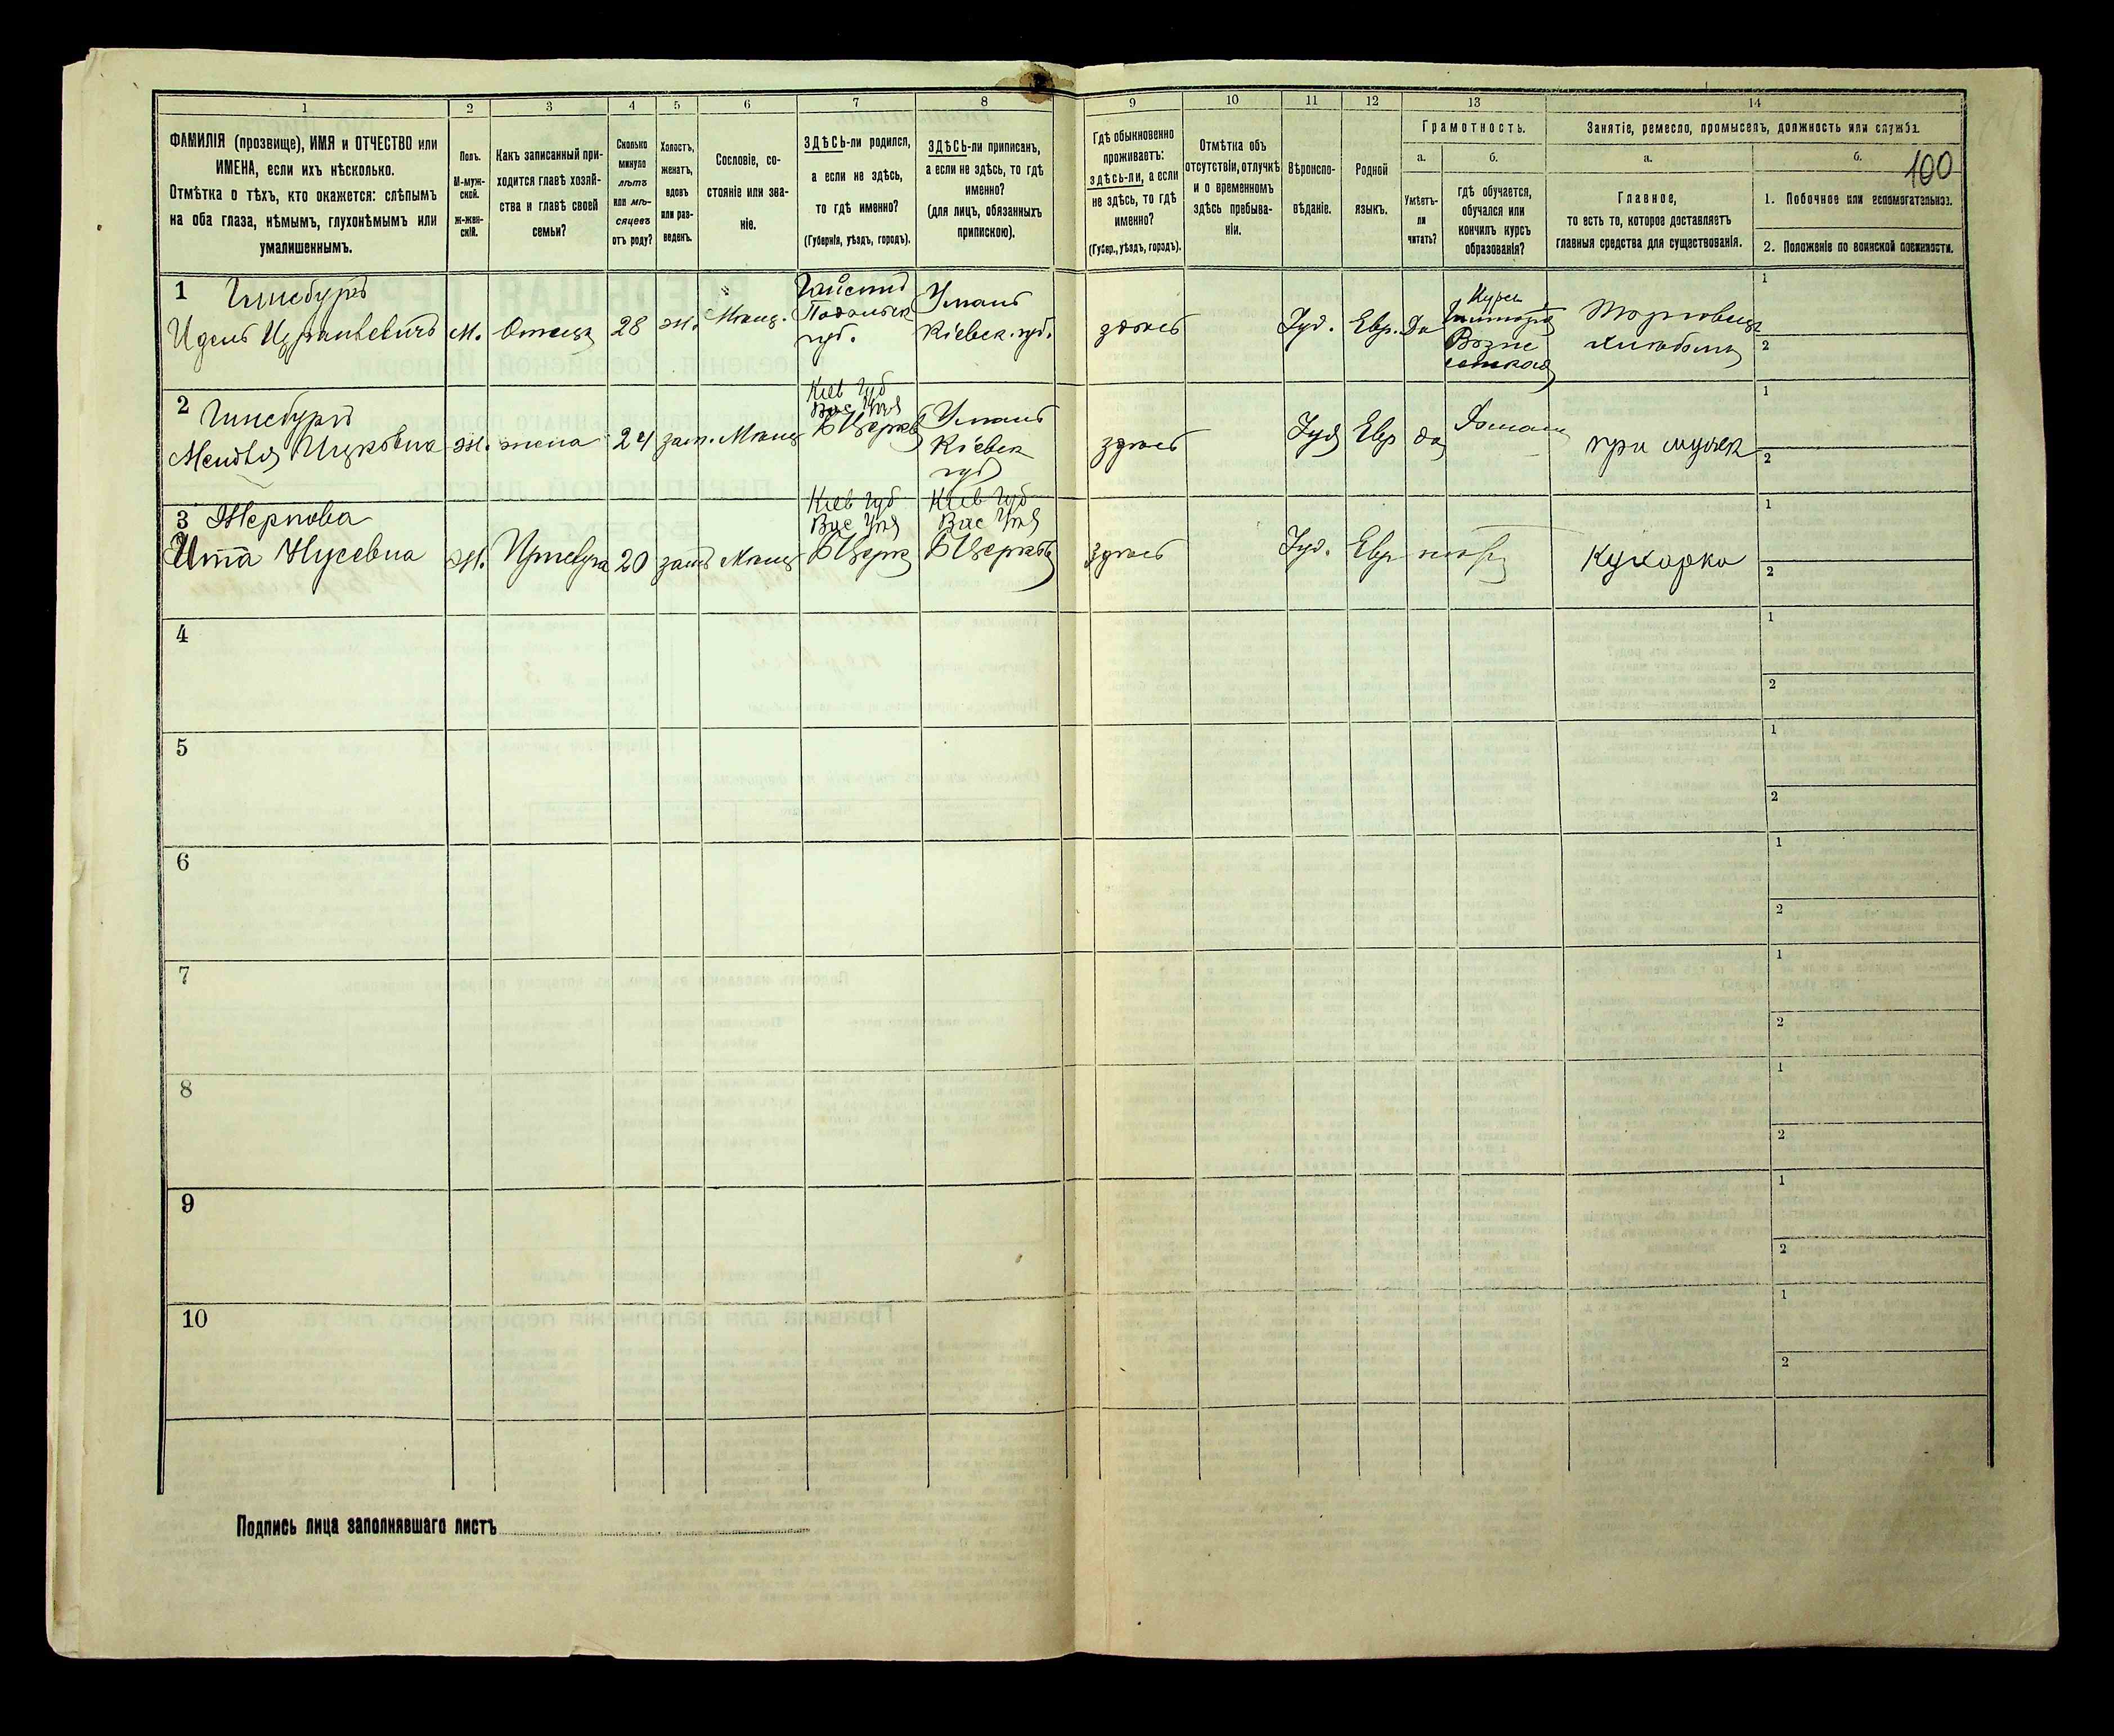 1 2 3 4 5 6 7 8 9 10 11 12 13 14
ФАМИЛІЯ (прозвище), ИМЯ и ОТЧЕСТВО или
ИМЕНА, если ихъ нѣсколько.
Отмѣтка о тѣхъ, кто окажется: слѣпымъ
на оба глаза, нѣмымъ, глухонѣмымъ или
умалишеннымъ.
Полъ.
М-муж-
ской.
ж-жен-
скій.
Какъ записанный при-
ходится главѣ хозяй-
ства и главѣ своей
семьи?
Сколько
минуло
лѣтъ
или мѣ-
сяцевъ
отъ роду?
Холостъ,
женатъ,
вдовъ
или раз-
веденъ.
Сословіе, со-
стояніе или зва-
ніе.
ЗДѢСЬ-ли родился,
а если не здѣсь,
то гдѣ именно?
(Губернія, уѣздъ, городъ).
ЗДѢСЬ-ли приписанъ,
а если не здѣсь, то гдѣ
именно?
(для лицъ, обязанныхъ
припискою).
Гдѣ обыкновенно
проживаетъ:
здѣсь-ли, а если
не здѣсь, то гдѣ
именно?
(Губер., уѣздъ, городъ).
Отмѣтка объ
отсутствіи, отлучкѣ
и о временномъ
здѣсь пребыва-
ніи.
Вѣроиспо-
вѣданіе.
Родной
языкъ.
Грамотность.
а.
Умѣетъ-
ли
читать?
б.
гдѣ обучается,
обучался или
кончилъ курсъ
образованія?
Занятіе, ремесло, промыселъ, должность или служба.
а.
Главное,
то есть то, которое доставляетъ
главныя средства для существованія.
б.
100
1. Побочное или вспомогательное.
2. Положеніе по воинской повинности.
1 Гинсбургъ
Идель Израилевичъ м. Отецъ 28 ж. Мѣщ.
Подольск
губ.
Умань
Кіевск. губ.
здѣсь Іуд. Евр. Да
Возне
сенской
Торговецъ
1
2
2 Гинсбургъ
Ицковна ж. жена 24 зам. Мѣщ
Кіев Губ
Вас Уѣз
БЦерк
Умань
Кіевск
губ
здѣсь Іуд Евр да
при мужѣ
1
2
3
Ита Нусевна ж. 20 зам Мѣщ
Кіев Губ
Вас Уѣз
БЦерк
Кіев Губ
Вас Уѣз
БЦерковь
здѣсь Іуд. Евр
Кухарка
1
2
4
1
2
5
1
2
6
1
2
7
1
2
8
1
2
9
1
2
10
1
2
Подпись лица заполнявшаго листъ